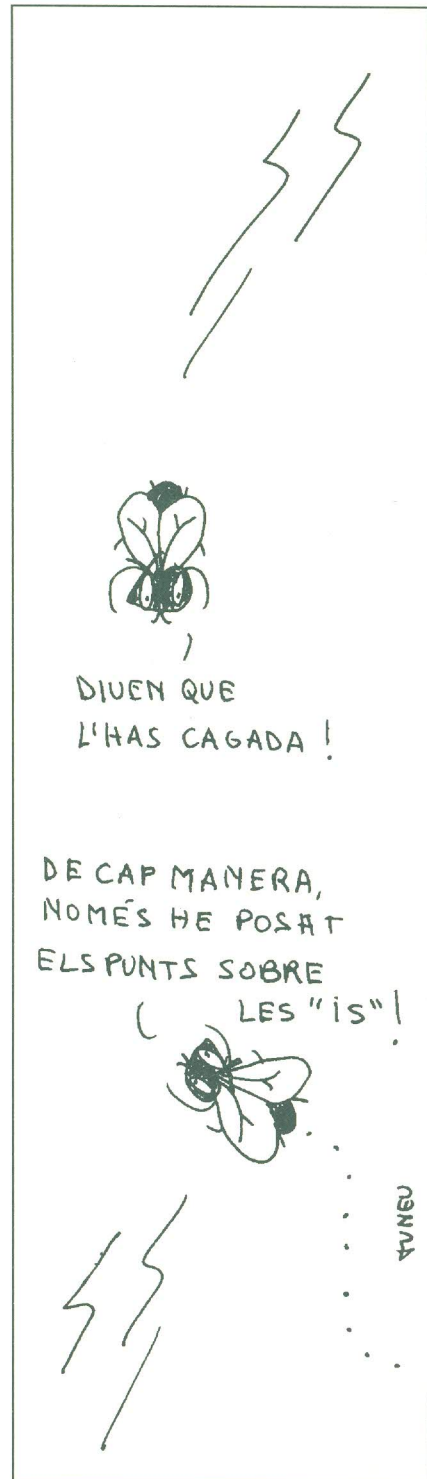 DIUEN QUE
L'HAS CAGADA !
DE CAP MANERA,
NOMÉS HE POSAT
ELS PUNTS SOBRE
LES "iS" !
TUNEU